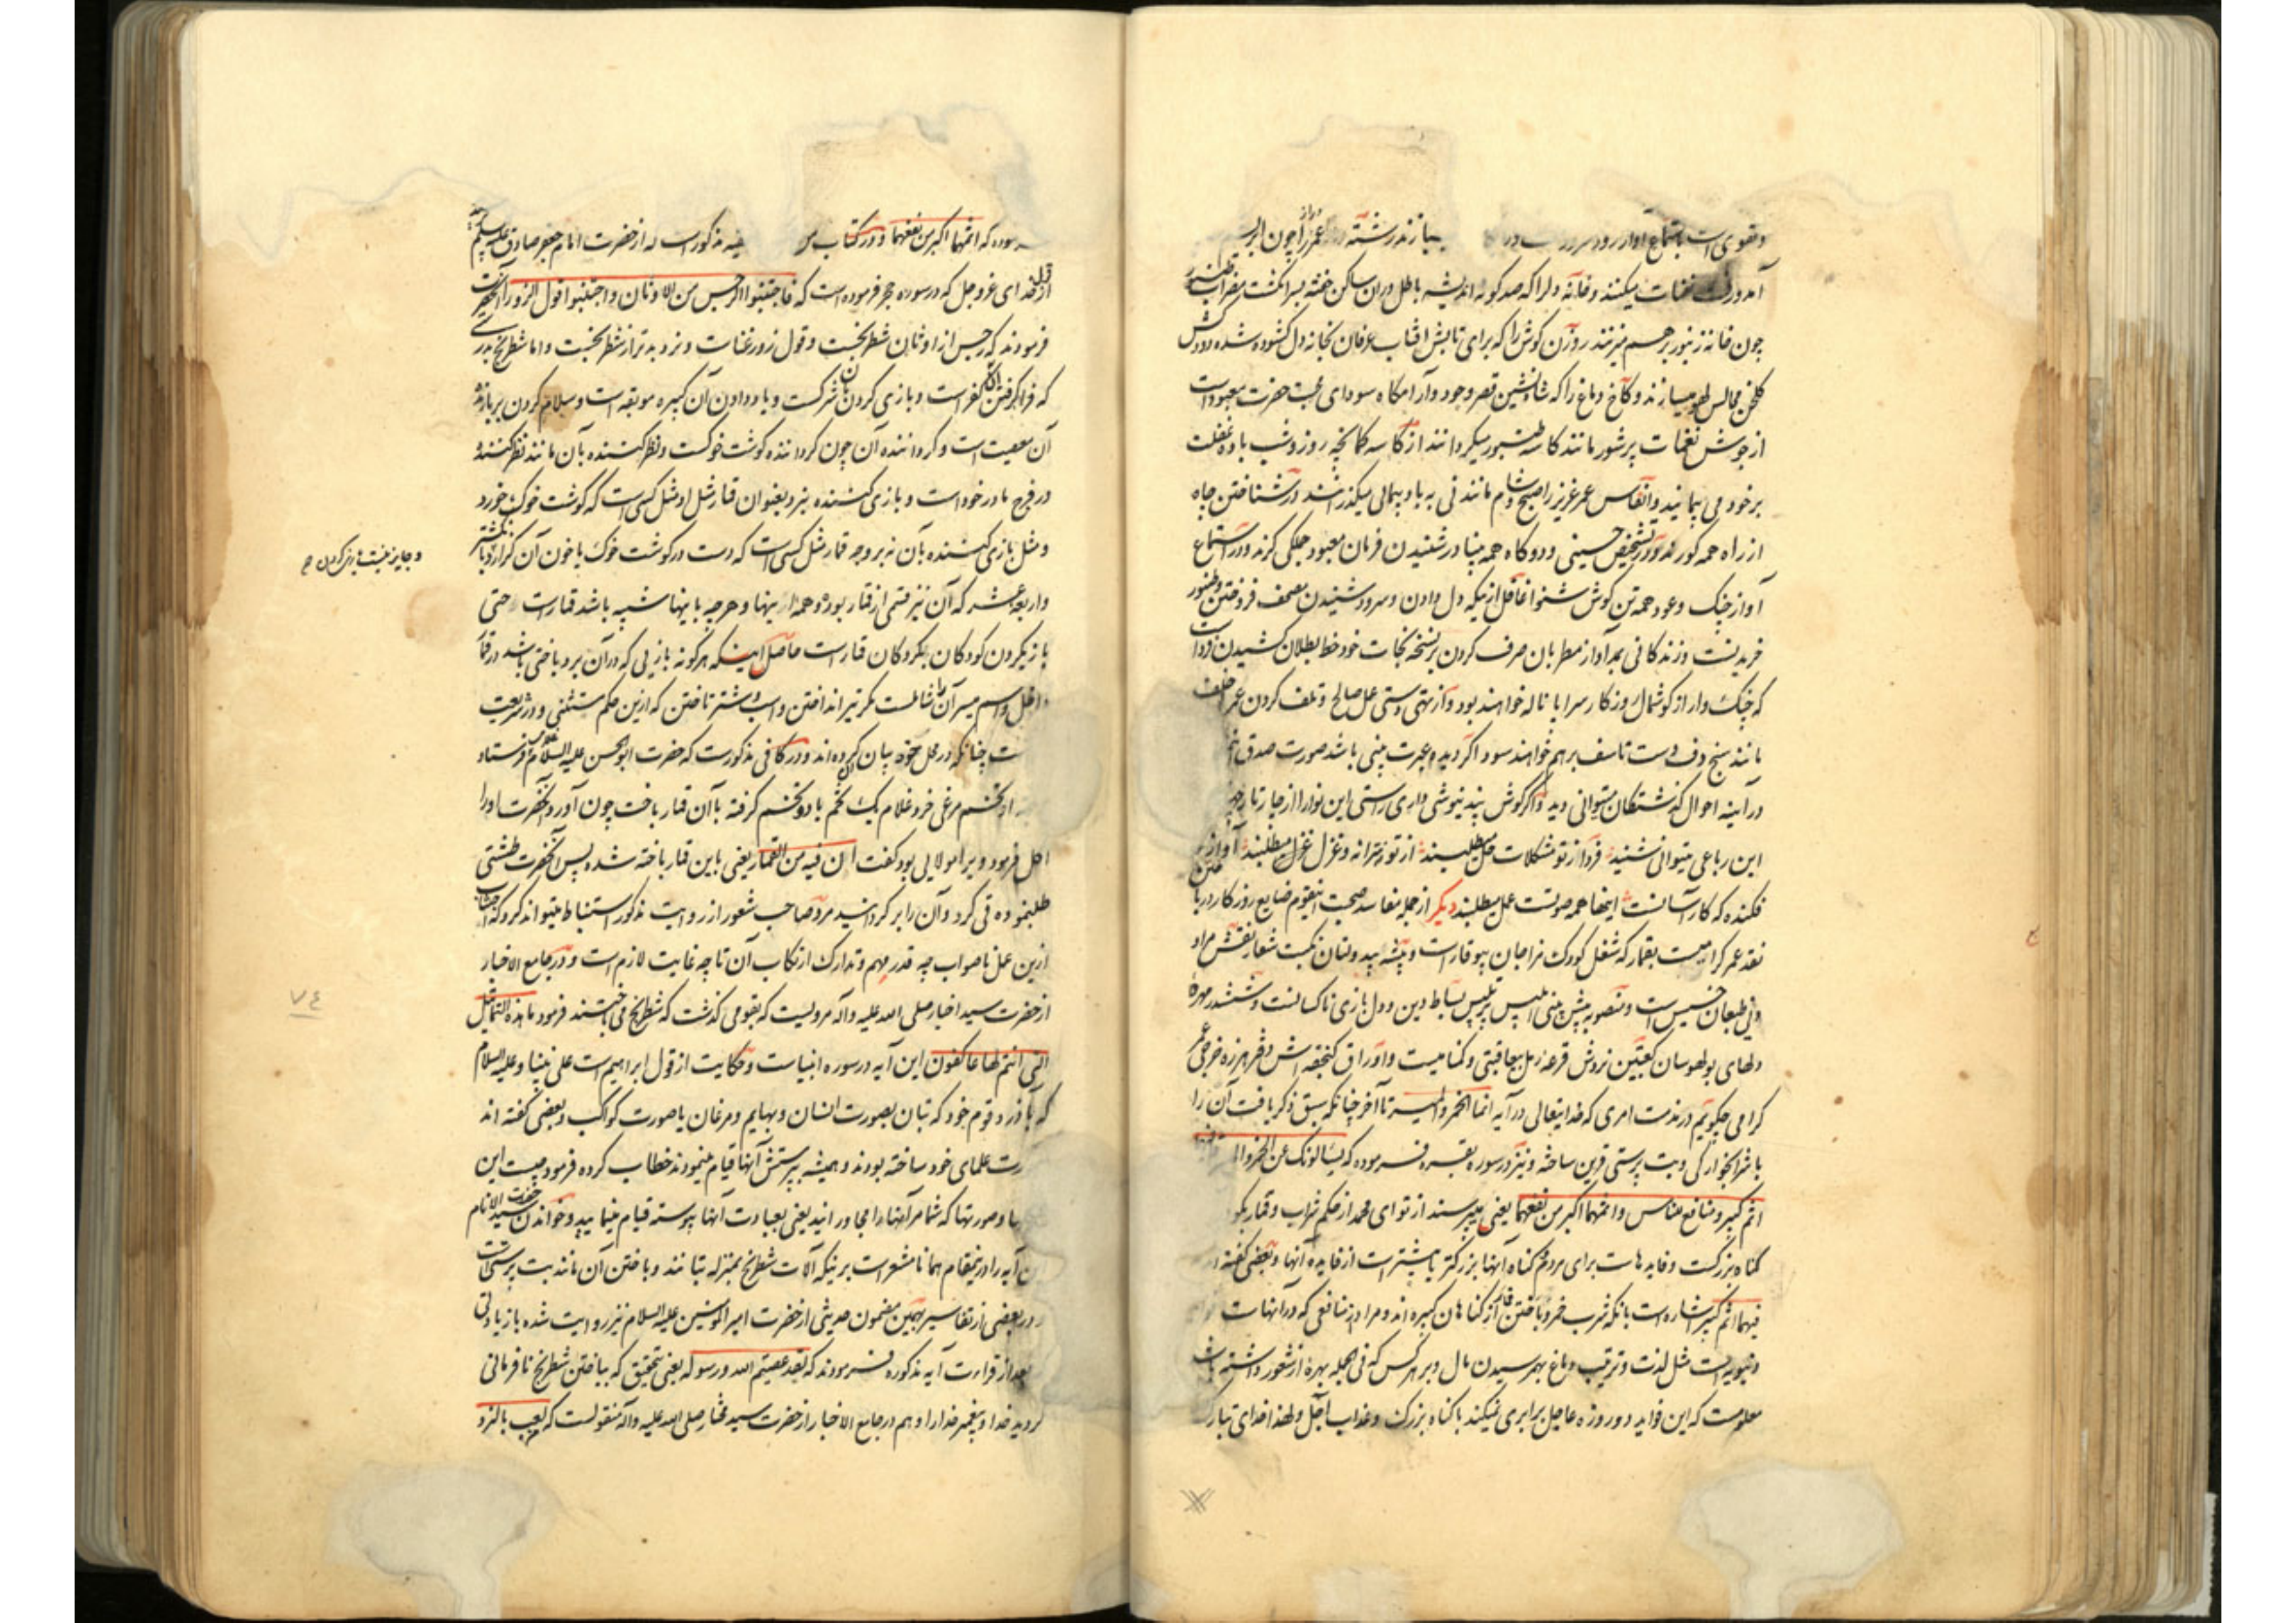 و تقوی است باستماع آواز رود و سرود در
آمد و رفت نغمات میکنند و خانه دلرا که صد کونه اندیشه باطل در آن ساکن
چون خانه زنبور بر هم میزنند روزن کوش را که برای تابش افتاب عرفان بخانه دل کشوده شده دودکش
کلخن مجالس لهو میسازند و کاخ دماغ را که شاه نشین قصر وجود و آرامکاه سودای محبت حضرت معبود است
از جوش نغمات پرشور مانند کاسه طنبور میکردانند از کاسه کمانچه روز و شب باده غفلت
بر خود می پیمایند و انفاس عمر عزیز را صبح و شام مانند نی به باد پیمائی میکذرانند در شناختن چاه
از راه همه کور و در تشخیص حسینی و دوکاه همه بینا در شنیدن فرمان معبود جملکی کرند و در استماع
آواز چنک و عود همه تن کوش شنوا غافل از اینکه دل دادن و سرود شنیدن مصحف فروختن و طنبور
خریدنست و زندکانی بمد آواز مطربان صرف کردن بر نسخه نجات خود خط بطلان کشیدن فردا
که چنک وار از کوشمال روزکار سراپا ناله خواهند بود و از تهی دستی عمل صالح و تلف کردن عمر
مانند سنج و دف دست تاسف بر هم خواهند سود اگر دیده عبرت بینی باشد صورت صدق
در آینه احوال کذشتکان میتوانی دید و اکر کوش پند نیوشی داری راستی این نوا را از چار تار
این رباعی میتوانی شنید فردا از تو مشکلات حل میطلبند از تو نه ترانه و غزل میطلبند آواز
فکنده که کار آسانست اینها همه صوتست عمل میطلبند دیگر از جمله مفاسد صحبت اینقوم ضایع روزکار در باختن
نقد عمر کرامیست بقمار که شغل کودک مزاجان بیوقار است و پیشه بیدولتان نکبت شعار نقش مراد
دنی طبعان خسیس است و منصوبه پیش بینی ابلیس پر تلبیس بساط دین و دل بازی ناکسانست و ششدر مهره
دلهای بولهوسان کعبتین نردش قرعه رمل بیعاقبتی و کنامیست و اوراق کنجفه اش دفتر هرزه خرجی عمر
کرامی چکویم در مذمت امری که خدایتعالی در آیه انما الخمر و المیسر تا آخر چنانکه سبق ذکر یافت آن را
با شرابخوارکی و بت پرستی قرین ساخته و نیز در سوره بقره فرموده که یسألونک عن الخمر و
اثم کبیر و منافع للناس و اثمهما اکبر من نفعهما یعنی میپرسند از تو ای محمد از حکم شراب و قمار بکو
کناه بزرکست و فایده هاست برای مردم و کناه آنها بزرکتر یا بیشتر است از فایده آنها و بعضی کفته
فیهما اثم کبیر اشاره است بآنکه شرب خمر و باختن قمار از کناهان کبیره اند و مراد از منافعی که در آنهاست
دنیویه است مثل لذت و ترتیب دماغ و بهم رسیدن مال و بر هر کس که فی الجمله بهره از شعور داشته باشد
معلومست که این فواید دو روزه عاجل برابری نمیکند با کناه بزرک و عذاب آجل و لهذا خدای تبارک
فرموده که اثمهما اکبر من نفعهما و در کتاب من مذکور است که از حضرت امام جعفر صادق علیه السلام
از قول خدای عز و جل که در سوره حج فرموده است که فاجتنبوا الرجس من الاوثان و اجتنبوا قول الزور آنحضرت
فرمودند که رجس از اوثان شطرنجست و قول زور غناست و نرد بدتر از شطرنجست و اما شطرنج بدرستی
که فرا کرفتن آن کفر است و بازی کردن بآن شرکست و یاد دادن آن کبیره موبقه است و سلام کردن بر بازنده
آن معصیت است و کرداننده آن چون کرداننده کوشت خوکست و نظر کننده بآن مانند نظر کننده
در فرج مادر خود است و بازی کننده بنرد بعنوان قمار مثل او مثل کسی است که کوشت خوک خورد
و مثل بازی کننده بآن نه بر وجه قمار مثل کسی است که دست در کوشت خوک یا خون آن کذارد
و جایز نیست بازی کردن
و اربعه عشر که آن نیز قسمی از قمار بوده و همه اینها و هر چه باینها شبیه باشد قمار است حتی
بازیکردن کودکان بکردکان قمار است حاصل اینکه هر کونه بازیی که در آن برد و باختی باشد در قمار
داخل و اسم میسر آن را شاملست مکر تیر انداختن و اسب و شتر تاختن که ازین حکم مستثنی و در شریعت
ست چنانکه در محل خود بیان کرده اند و در کافی مذکورست که حضرت ابو الحسن علیه السلام غلامی فرستاد
تخم مرغی خرد غلام یک تخم یا دو تخم کرفته با آن قمار باخت چون آورد آنحضرت او را
اکل فرمود و بر امولایی بود کفت ان فیه من القمار یعنی باین قمار باخته شده پس آنحضرت طشتی
طلب نموده قی کرد و آن را بر کردانید مرد صاحب شعور از روایت مذکور استنباط میتواند کرد که اجتناب
ازین عمل ناصواب چه قدر مهم و تدارک ارتکاب آن تا چه غایت لازم است و در جامع الاخبار
از حضرت سید اخیار صلی الله علیه و آله مرویست که بقومی کذشت که شطرنج می باختند فرمود ما هذه التماثیل
التی انتم لها عاکفون این آیه در سوره انبیاست و حکایت از قول ابراهیم است علی نبینا و علیه السلام
که با آزر و قوم خود که بتان بصورت انسان و بهایم و مرغان یا صورت کواکب و بعضی کفته اند
صورت علمای خود ساخته بودند و همیشه بپرستش آنها قیام مینمودند خطاب کرده فرمود چیست این
و صورتها که شما مر آنها را مجاورانید یعنی بعبادت آنها پیوسته قیام مینمایید و خواندن حضرت سید الانام
این آیه را در اینمقام همانا مشعر است بر اینکه آلات شطرنج بمنزله بتانند و باختن آن مانند بت پرستی است
و در بعضی از تفاسیر بهمین مضمون حدیثی از حضرت امیر المومنین علیه السلام نیز روایت شده با زیادتی
بعد از قراءت آیه مذکوره فرمودند که لقد عصیتم الله و رسوله یعنی بتحقیق که بباختن شطرنج نافرمانی
کردید خدا و پیغمبر خدا را و هم در جامع الاخبار از حضرت سید مختار صلی الله علیه و آله منقولست که لعب بالنرد
٧٤